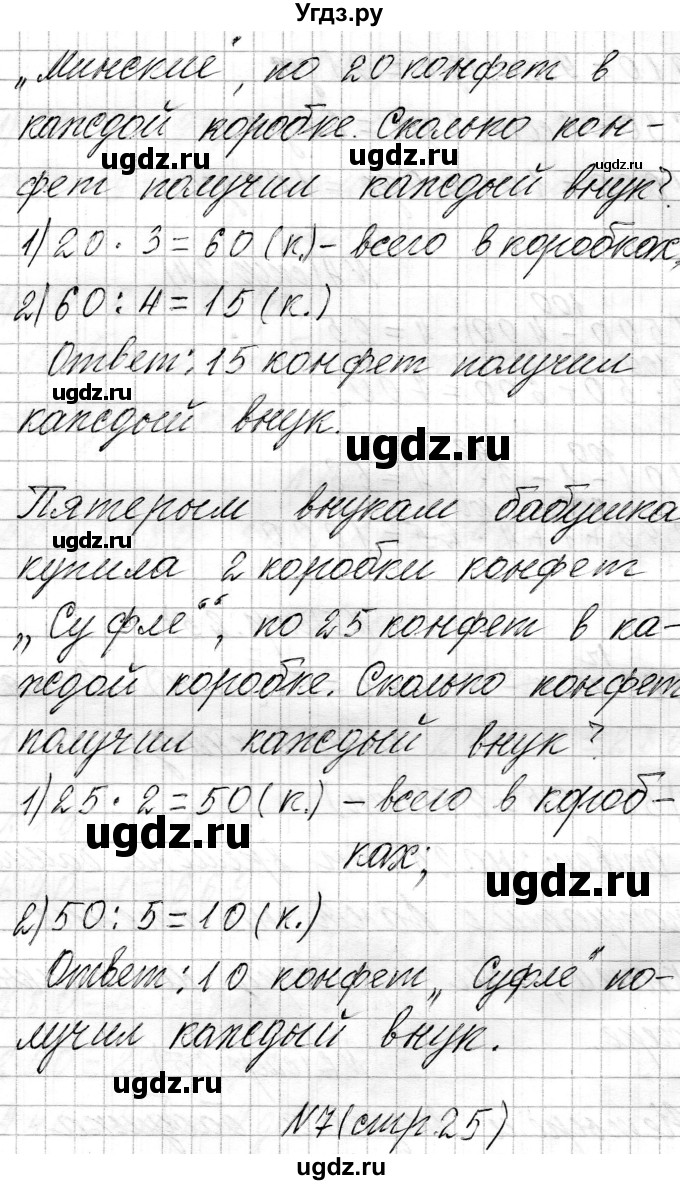 Угдз.ру
„Минские“, по 20 конфет в
каждой коробке. Сколько кон-
ugdz.ru ugdz.ru ugdz.ru
фет получил каждый внук?
1) 20 · 3 = 60 (к.) – всего в коробках;
2) 60 : 4 = 15 (к.)
Ответ: 15 конфет получил
ugdz.ru
каждый внук.
ugdz.ru
Пятерым внукам бабушка
ugdz.ru
купила 2 коробки конфет
„Суфле“, по 25 конфет в ка-
ждой коробке. Сколько конфет
получил каждый внук?
1) 25 · 2 = 50 (к.) – всего в короб-
ugdz.ru
ках;
ugdz.ru
2) 50 : 5 = 10 (к.)
Ответ: 10 конфет „Суфле“ по-
лучил каждый внук.
ugdz.ru
N7 (стр. 25)
ugdz.ru